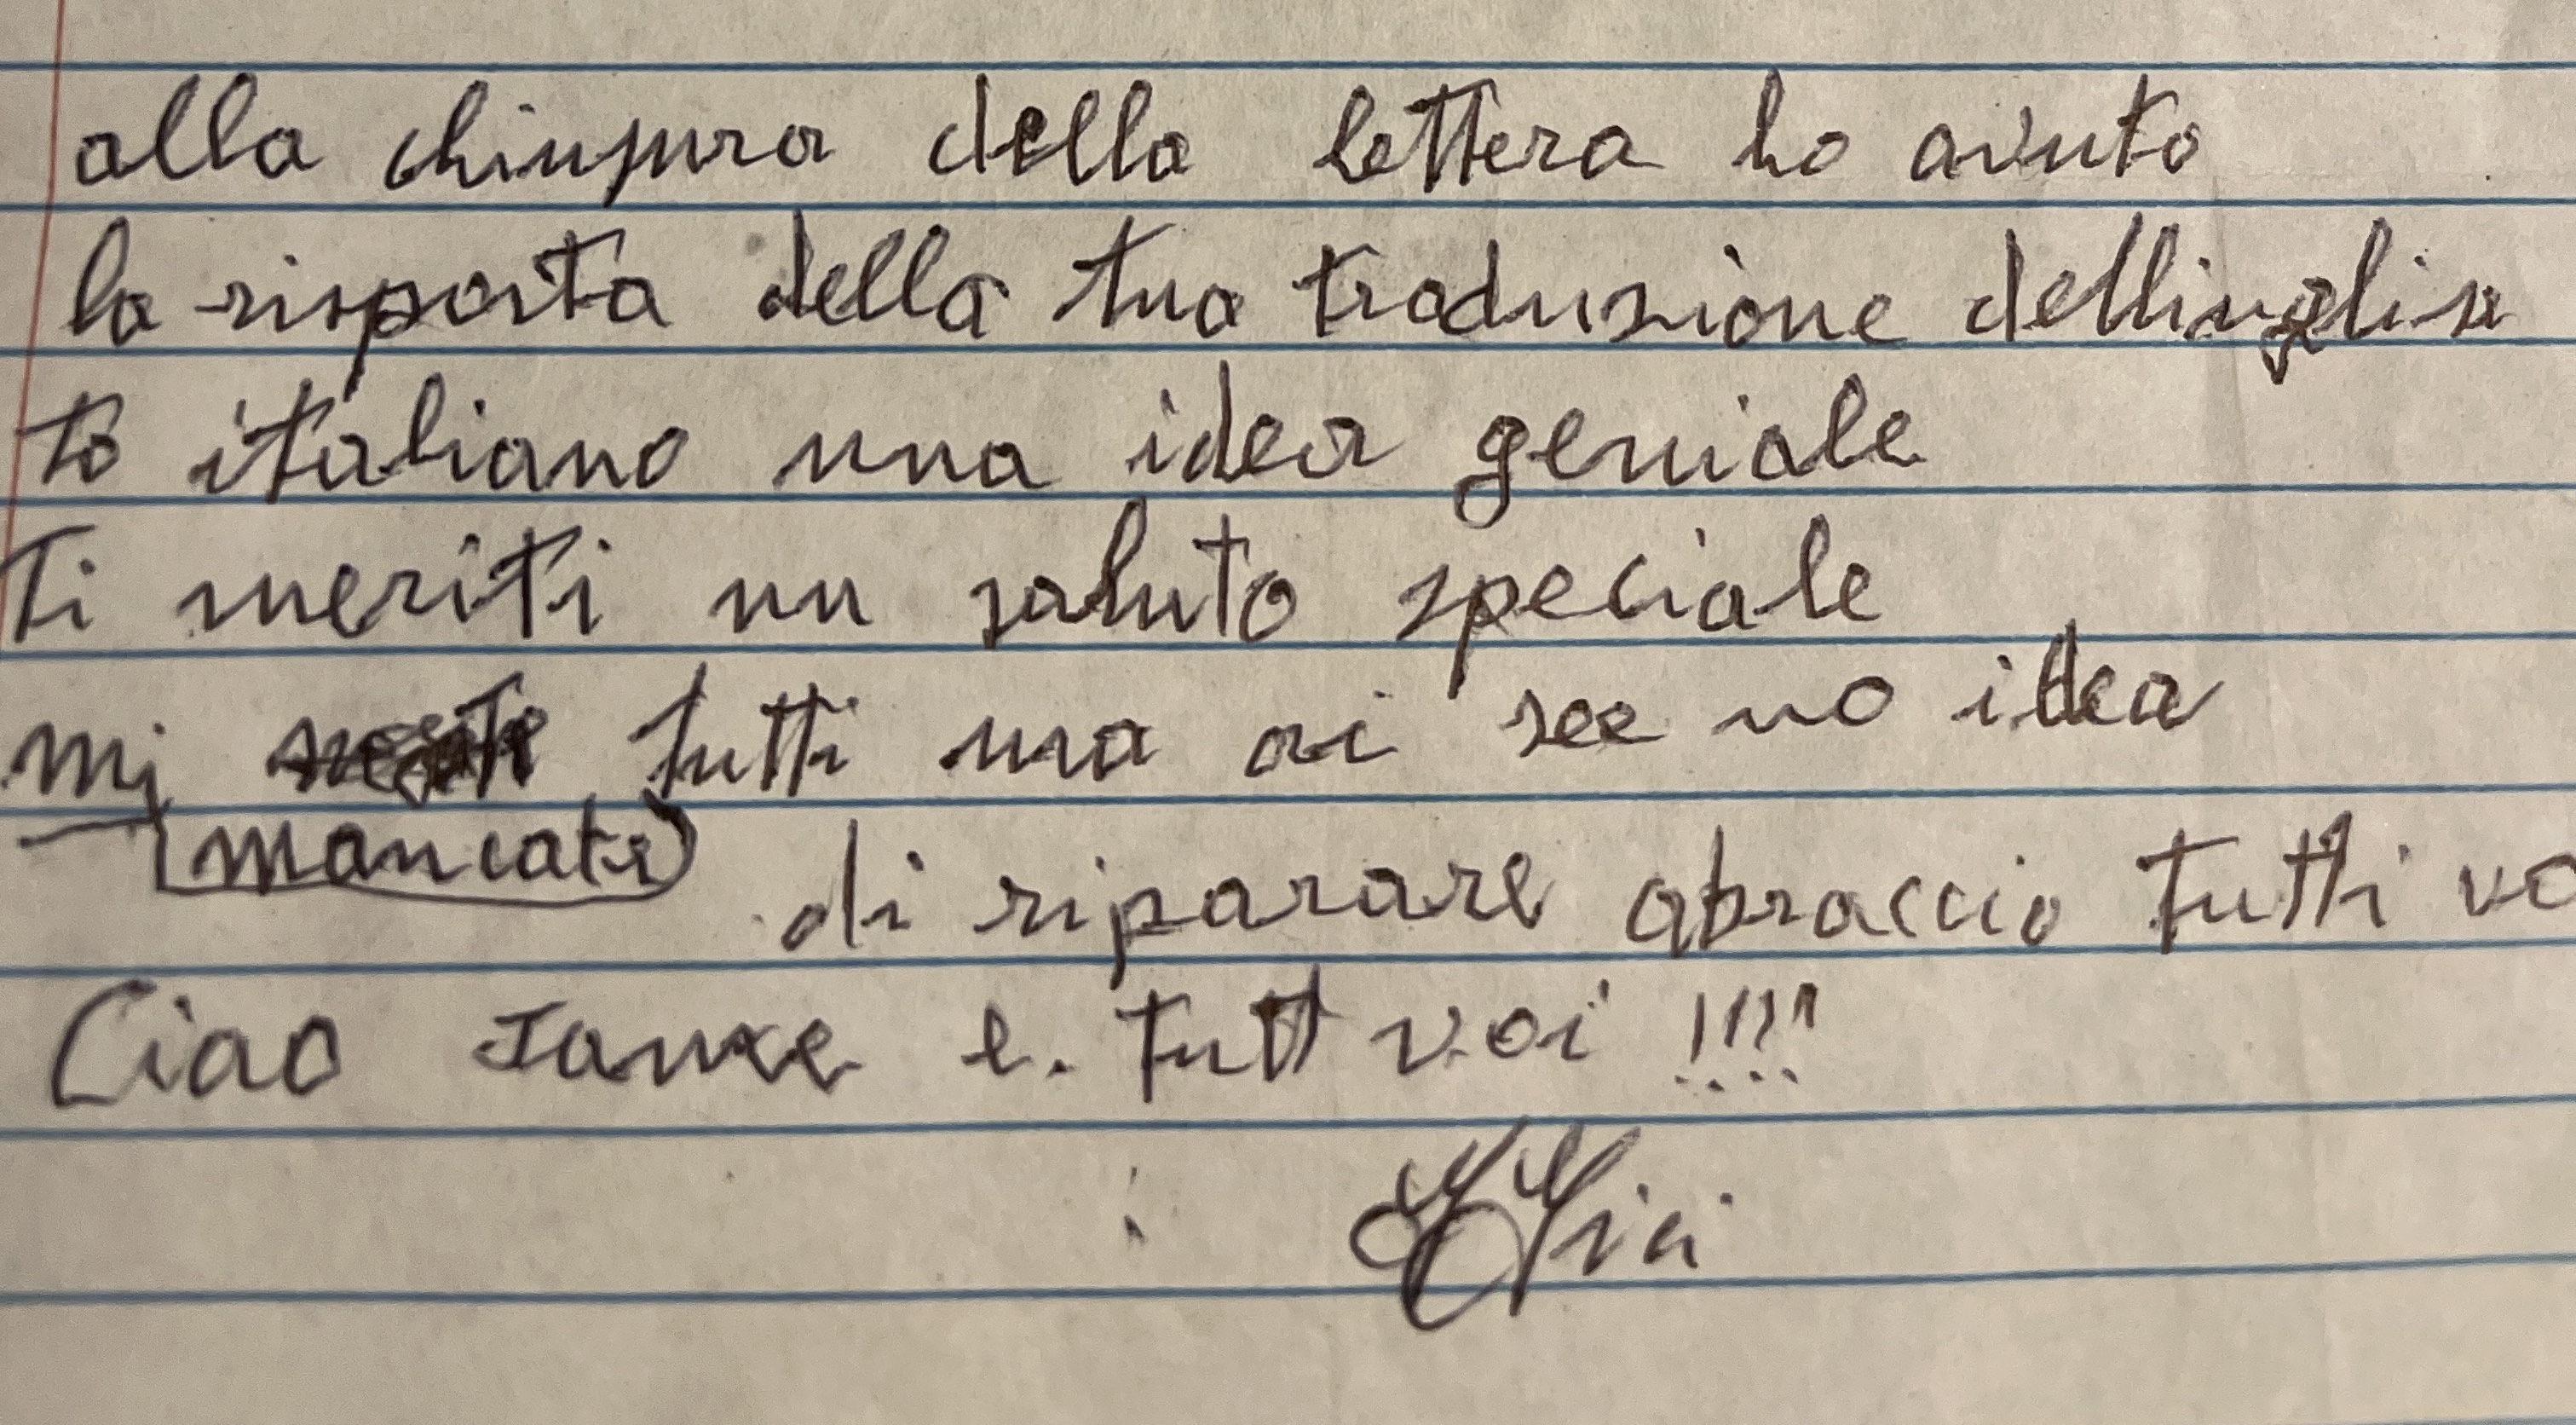 alla chiusura della lettera ho avuto
la risposta della tua traduzione dellinglise
to italiano una idea geniale
Ti meriti un saluto speciale
mi tutti ma ai see no idea
mancate
di riparare abraccio tutti vo
Ciao e. tutt voi !!!!